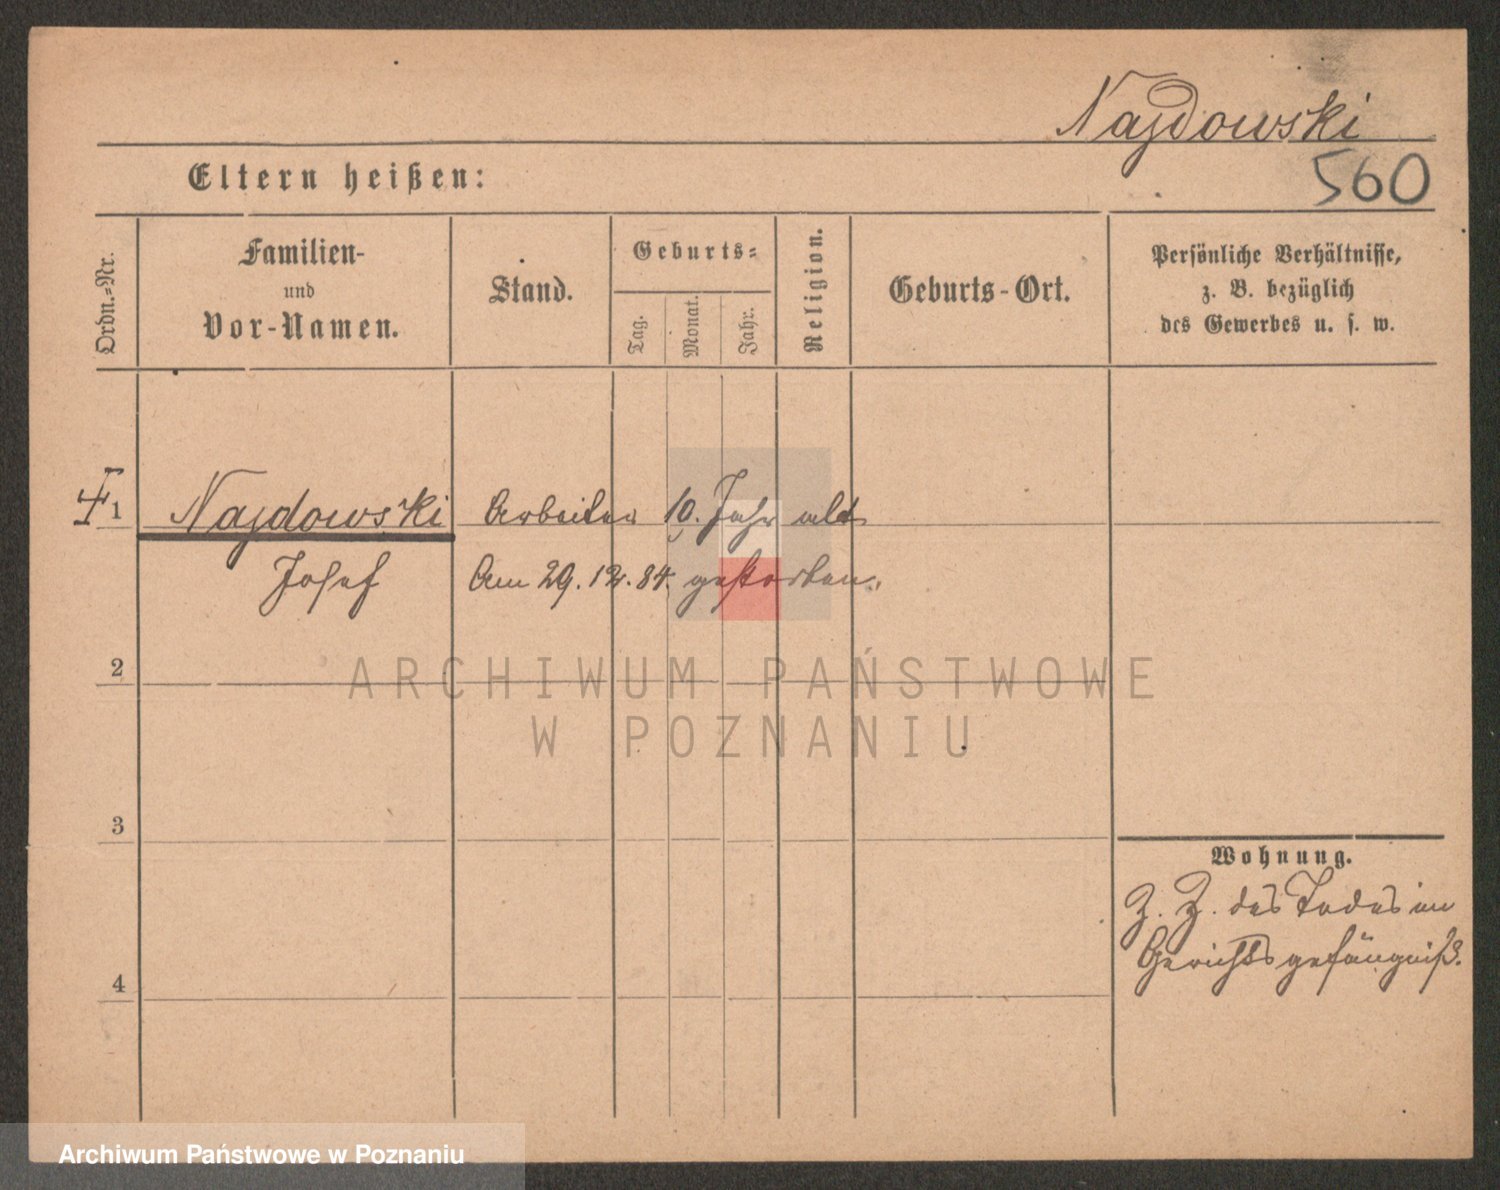 Najdowski
560
Eltern heißen:
Ordn.=Nr.
Familien-
und
Vor-Namen.
Stand.
Geburts=
Tag.
Monat.
Jahr.
Religion.
Geburts-Ort.
Persönliche Verhältnisse,
z. B. bezüglich
des Gewerbes u. s. w.
1 Najdowski Arbeiter Jahr alt
Josef Am 29.12.84. gestorben.
2
ARCHIWUM PAŃSTWOWE
W POZNANIU
3
Wohnung.
Z. Z. des Todes im
Gerichtsgefängniß.
4
Archiwum Państwowe w Poznaniu